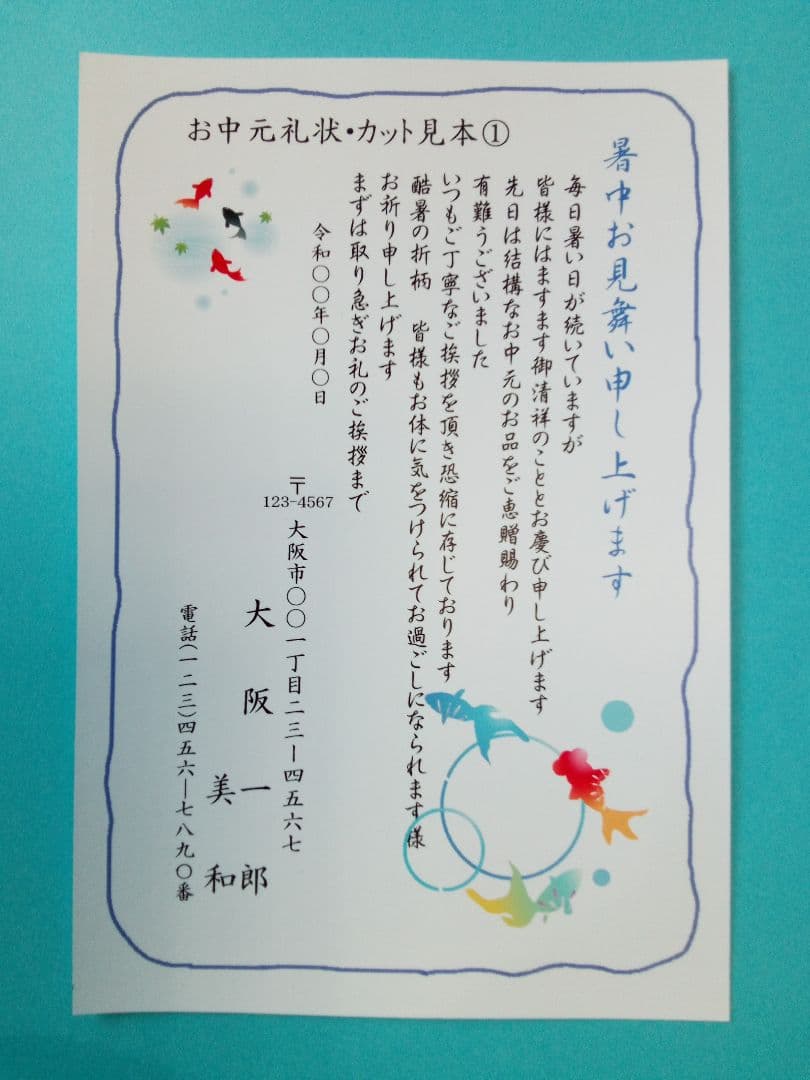 お中元礼状・カット見本①
暑中お見舞い申し上げます
毎日暑い日が続いていますが
皆様にはますます御清祥のこととお慶び申し上げます
先日は結構なお中元のお品をご恵贈賜わり
有難うございました
いつもご丁寧なご挨拶を頂き恐縮に存じております
酷暑の折柄　皆様もお体に気をつけられてお過ごしになられます様
お祈り申し上げます
まずは取り急ぎお礼のご挨拶まで
令和〇〇年〇月〇日
〒
123-4567
大阪市〇〇一丁目二三ー四五六七
大阪一郎
美和
電話(一二三)四五六ー七八九〇番